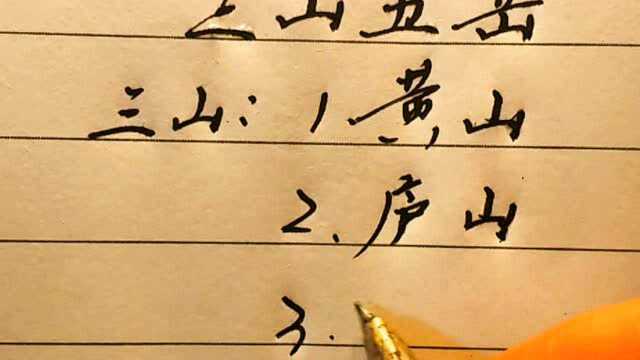 三山五岳
三山：1.黄山
2.庐山
3.